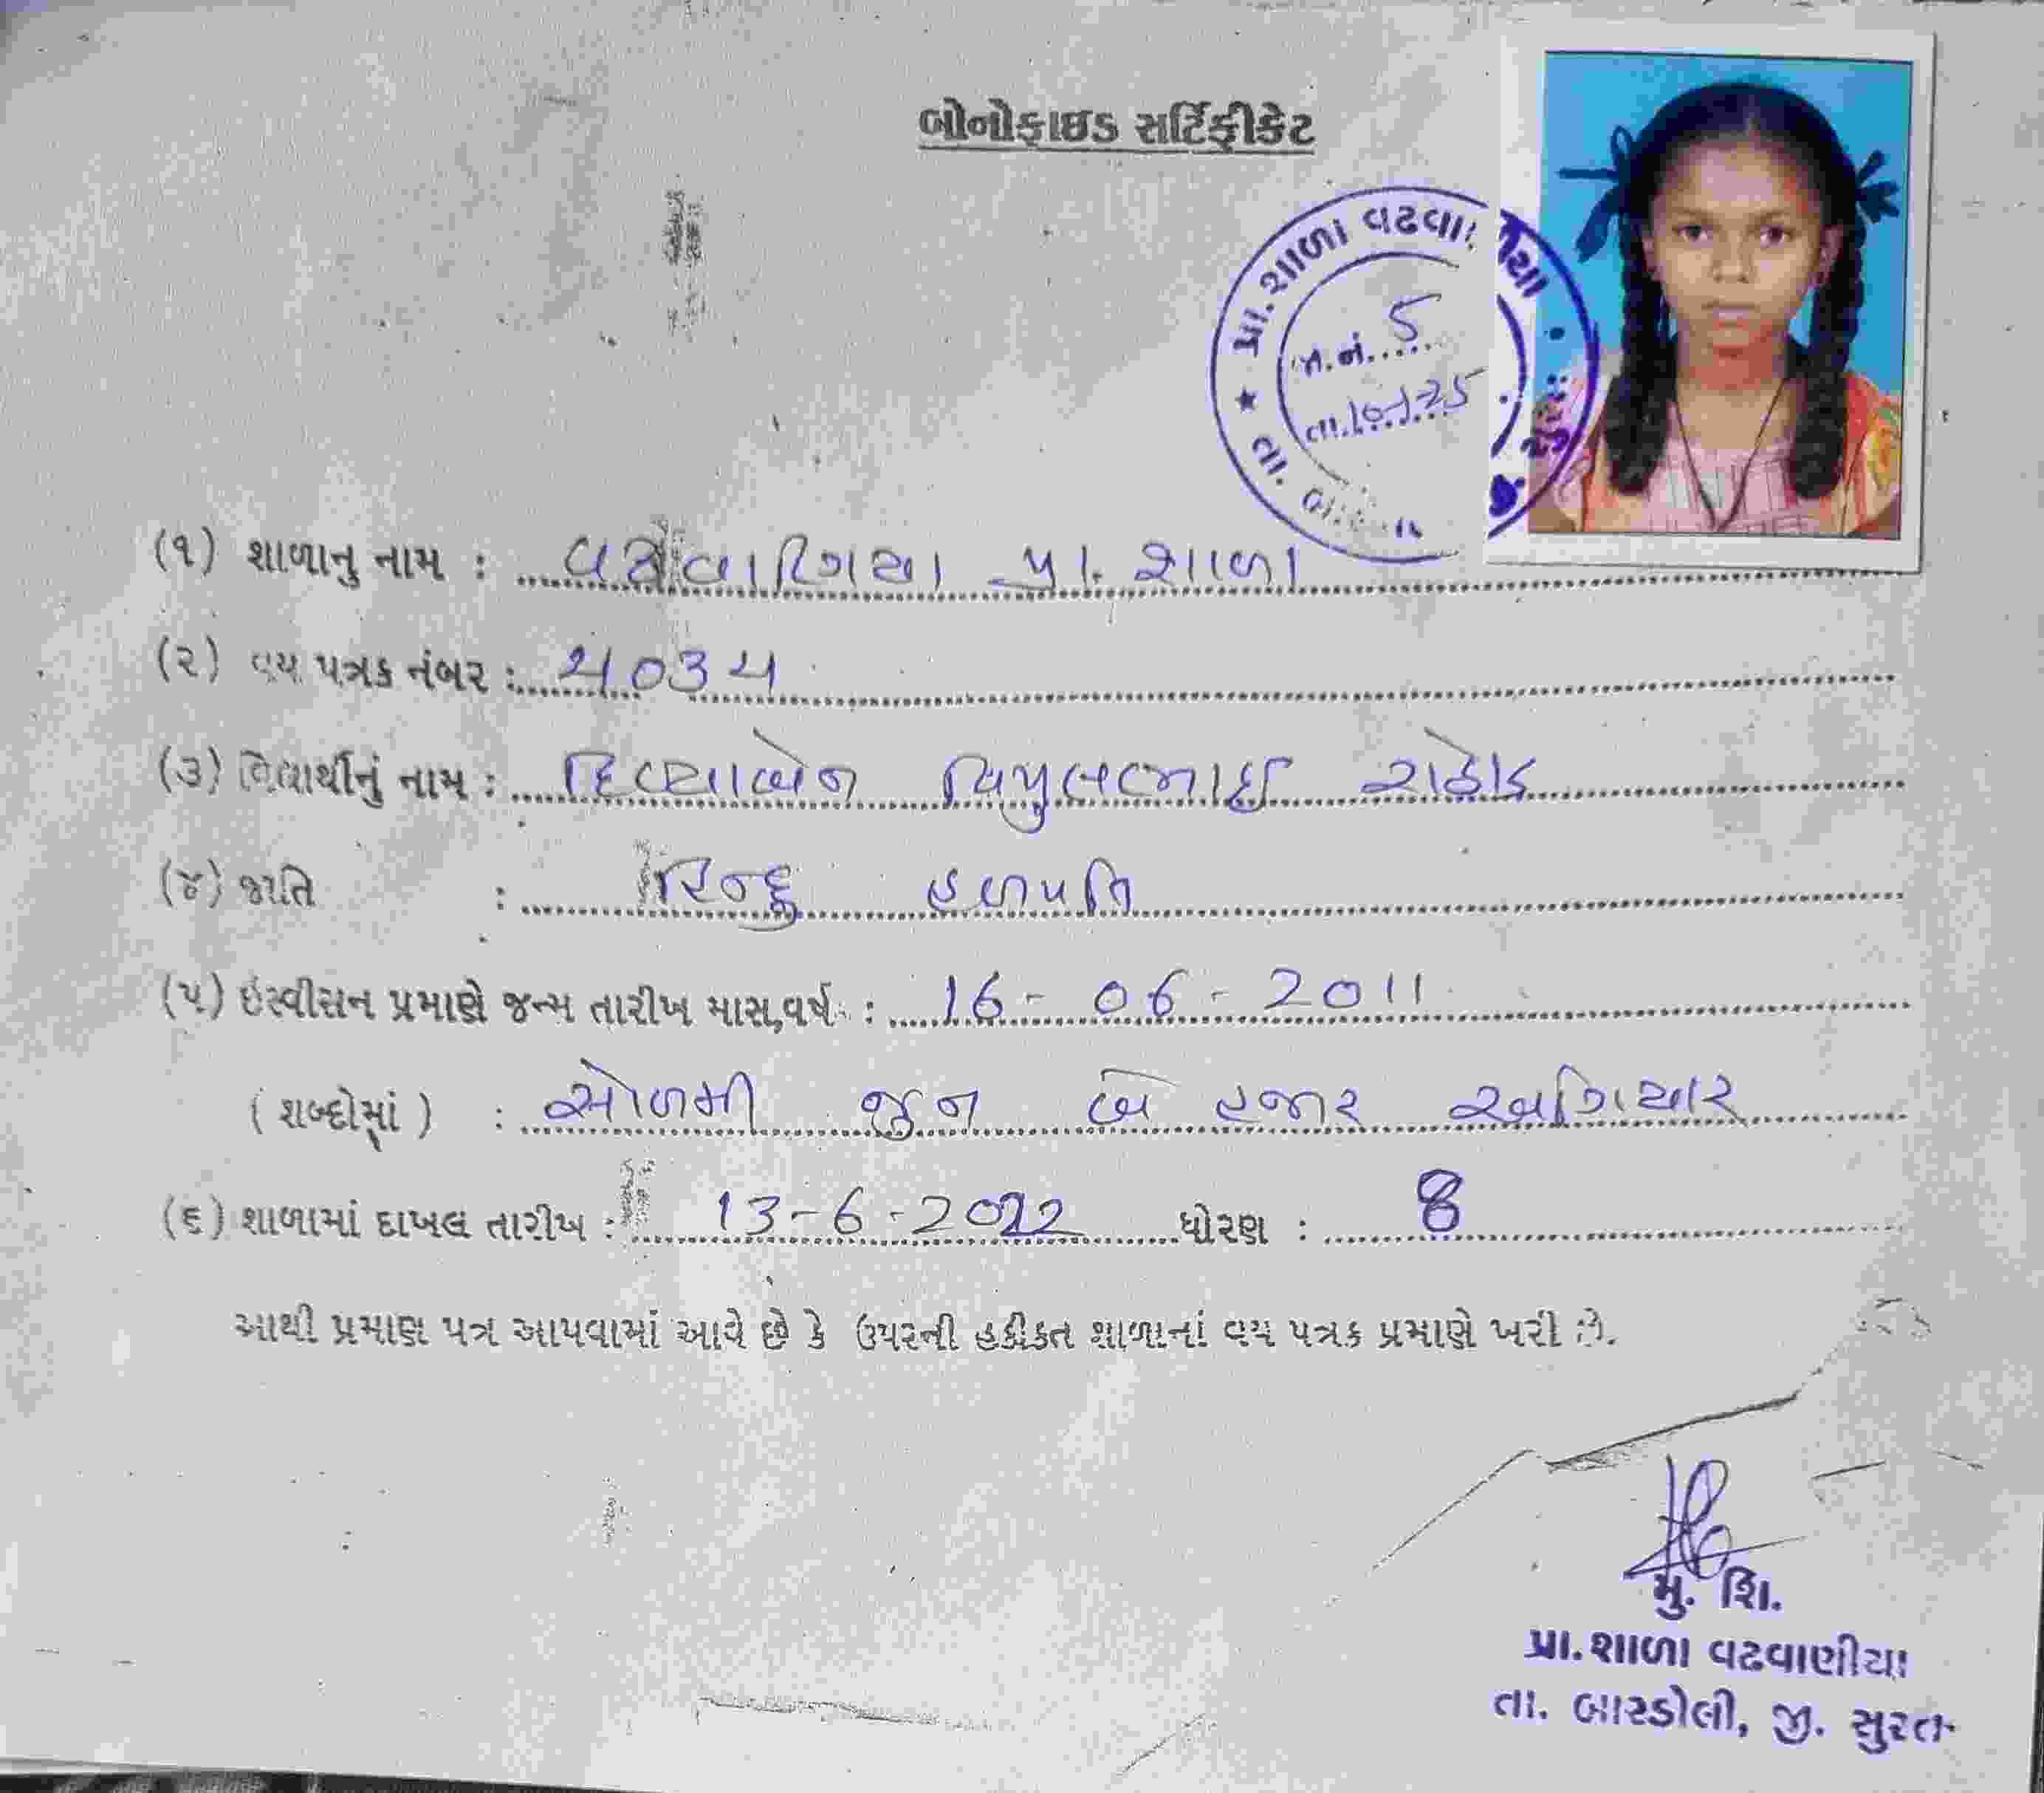 બોનોફાઇડ સર્ટિફીકેટ
પ્રા. શાળા વઢવા
જા.નં. 5
તા.
(૧) શાળાનુ નામ : વઢવાણિયા પ્રા. શાળા
(૨) વય પત્રક નંબર : ૫૦૩૫
(૩) વિદ્યાર્થીનું નામ : દિવ્યાબેન વિપુલભાઈ રાઠોડ
(૪) જાતિ : હિન્દુ હળપતિ
(૫) ઇસ્વીસન પ્રમાણે જન્મ તારીખ માસ,વર્ષ : 16 - 06 - 2011
( શબ્દોમાં ) : સોળમી જુન બે હજાર અગિયાર
(૬) શાળામાં દાખલ તારીખ : 13-6-2022 ધોરણ : 8
આથી પ્રમાણ પત્ર આપવામાં આવે છે કે ઉપરની હકીકત શાળાનાં વય પત્રક પ્રમાણે ખરી છે.
મુ. શિ.
પ્રા.શાળા વઢવાણીયા
તા. બારડોલી, જી. સુરત